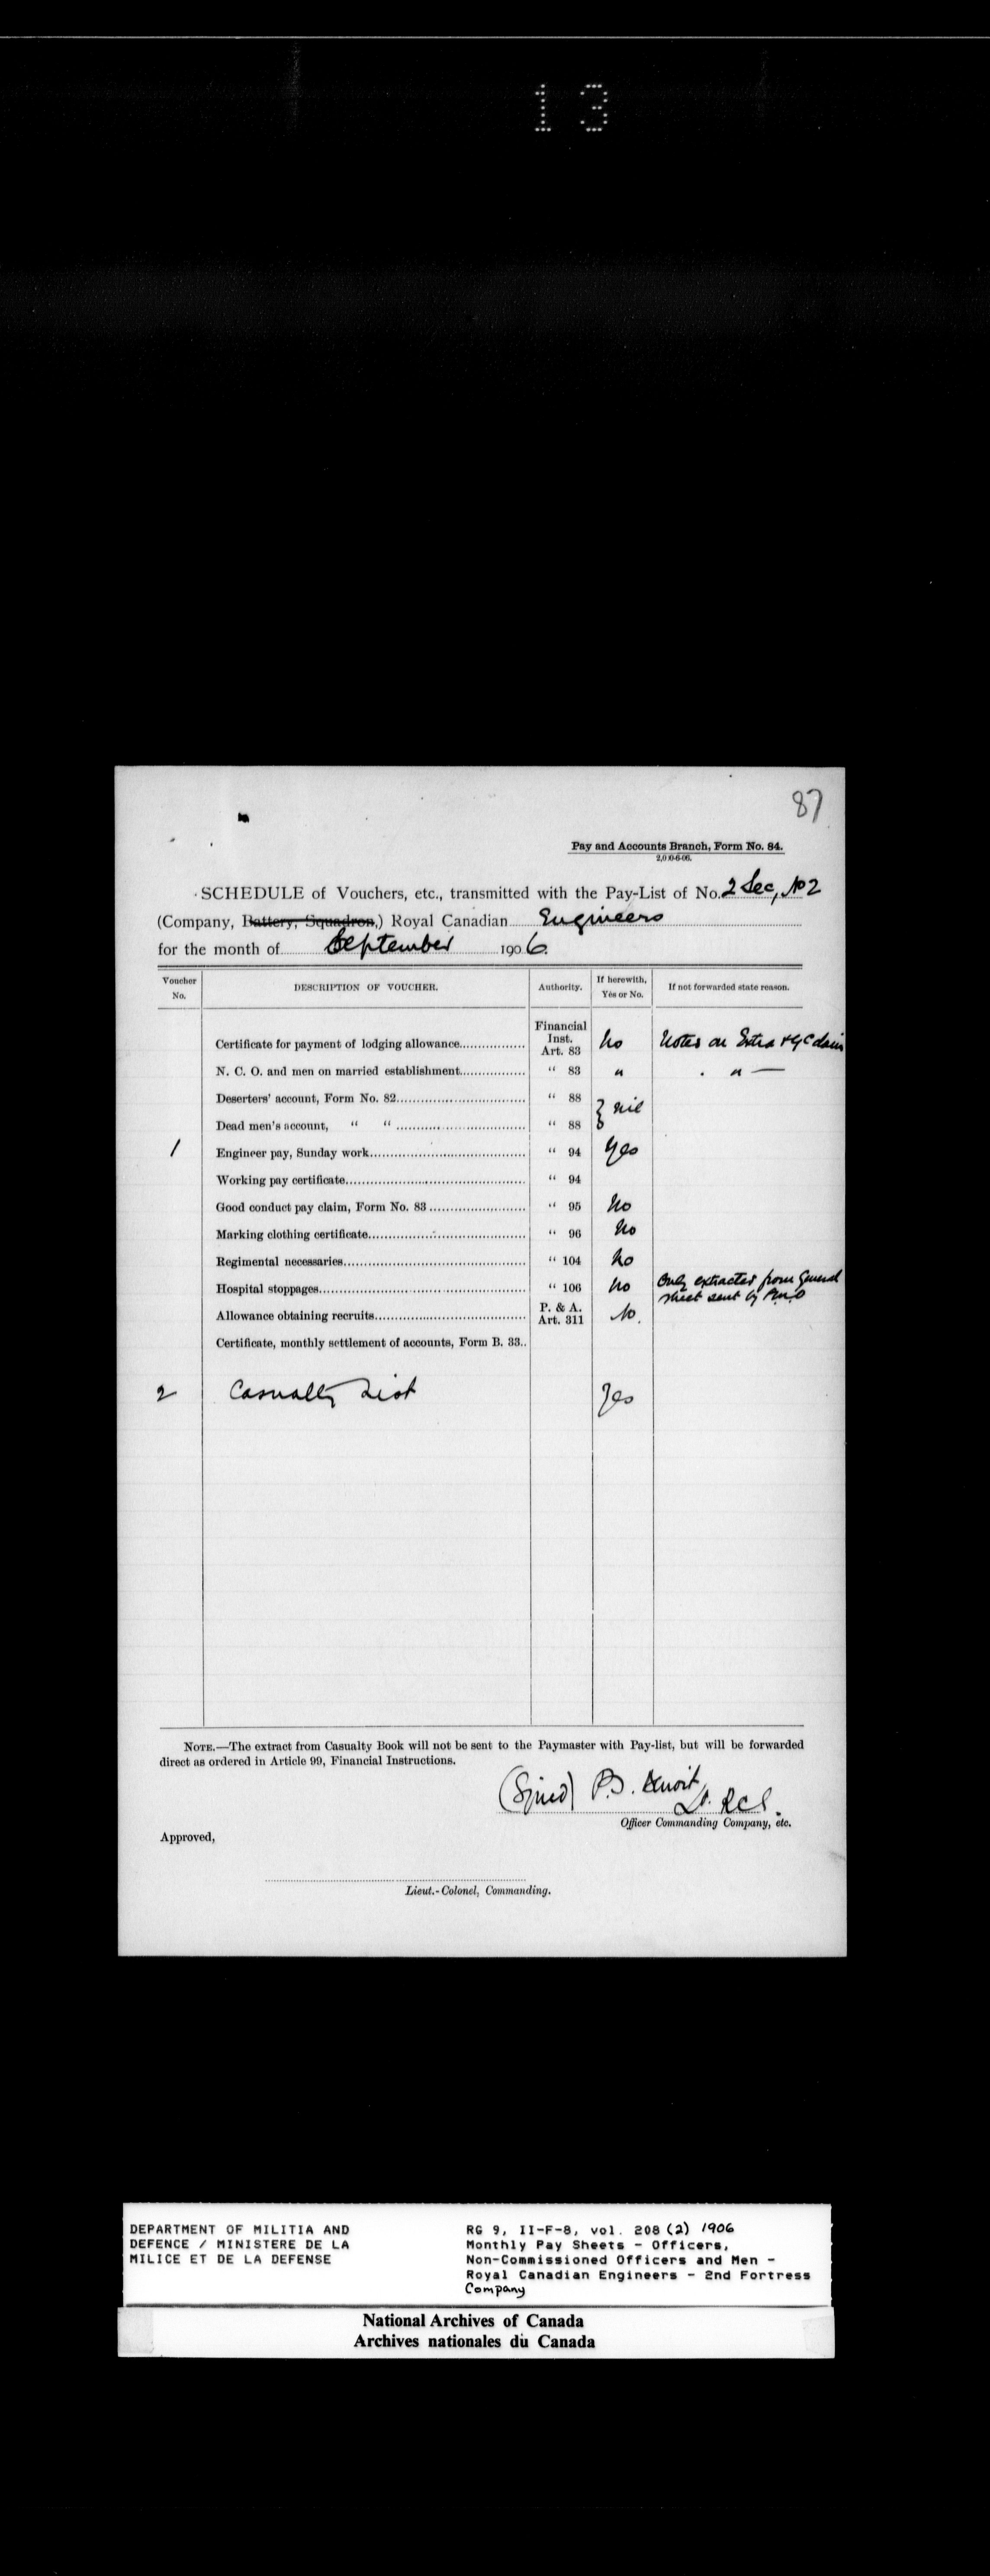 13
87
Pay and Accounts Branch, Form No. 84.
SCHEDULE of Vouchers, etc., transmitted with the Pay-List of No. 2 Sec, No 2
(Company, Battery, Squadron,) Royal Canadian Engineers
for the month of September 1906.
Voucher No. DESCRIPTION OF VOUCHER. Authority. If herewith, Yes or No. If not forwarded state reason.
Certificate for payment of lodging allowance Financial Inst. Art. 83 No Notes on Extra & GC claim
N. C. O. and men on married establishment “ 83 " "
Deserters' account, Form No. 82 “ 88 } nil
Dead men's account, “ “ “ 88
1 Engineer pay, Sunday work “ 94 Yes
Working pay certificate “ 94
Good conduct pay claim, Form No. 83 “ 95 No
Marking clothing certificate “ 96 No
Regimental necessaries “ 104 No
Hospital stoppages “ 106 No Only extracted from General sheet sent by
Allowance obtaining recruits P. & A. Art. 311 No.
Certificate, monthly settlement of accounts, Form B. 33..
2 Casualty List Yes
NOTE.—The extract from Casualty Book will not be sent to the Paymaster with Pay-list, but will be forwarded
direct as ordered in Article 99, Financial Instructions.
(Signed) Benoit
Officer Commanding Company, etc.
Approved,
Lieut.-Colonel, Commanding.
DEPARTMENT OF MILITIA AND
DEFENCE / MINISTERE DE LA
MILICE ET DE LA DEFENSE
RG 9, II-F-8, vol. 208 (2) 1906
Monthly Pay Sheets - Officers,
Non-Commissioned Officers and Men -
Royal Canadian Engineers - 2nd Fortress
Company
National Archives of Canada
Archives nationales du Canada